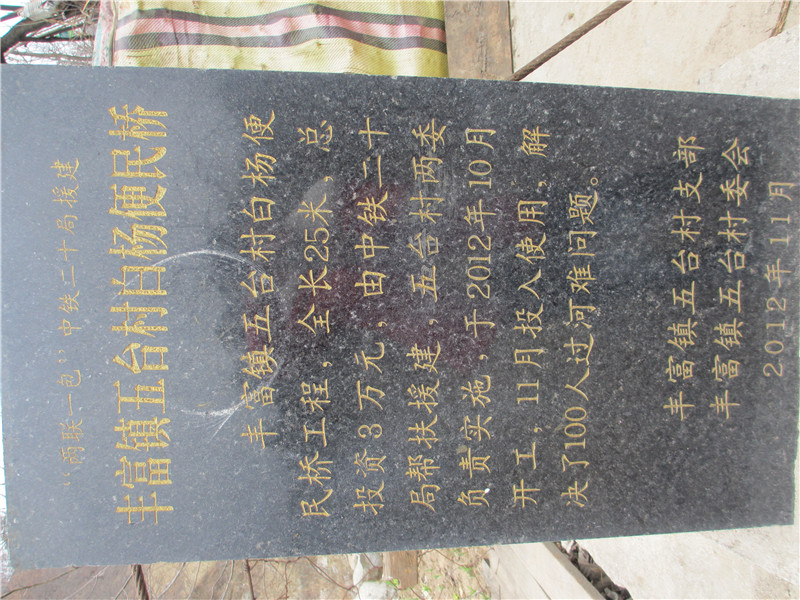 “两联一包”中铁二十局援建
丰富镇五台村白杨便民桥
丰富镇五台村白杨便
民桥工程，全长25米，总
投资3万元，由中铁二十
局帮扶援建，五台村两委
负责实施，于2012年10月
开工，11月投入使用，解
决了100人过河难问题。
丰富镇五台村支部
丰富镇五台村委会
2012年11月